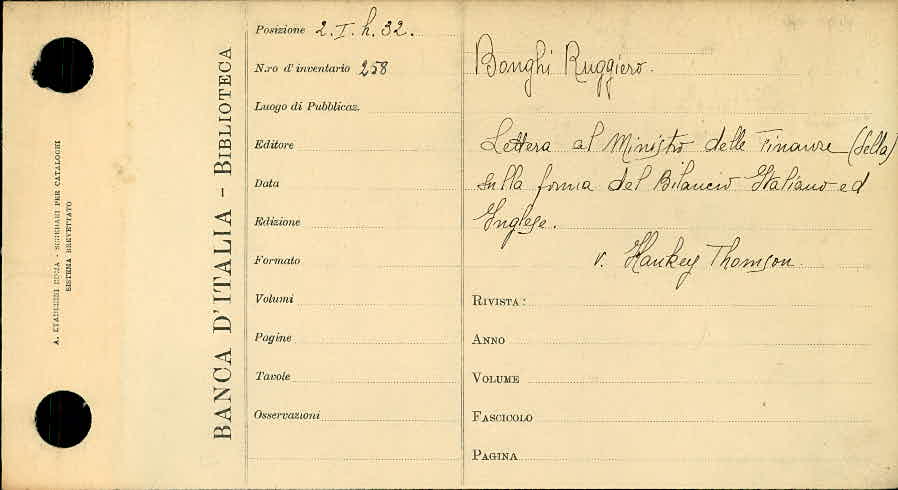 A. STADERINI ROMA - SCHEDARI PER CATALOGHI
SISTEMA BREVETTATO
BANCA D'ITALIA - BIBLIOTECA
Posizione 2. I. h. 32.
N.ro d'inventario 258
Luogo di Pubblicaz.
Editore
Data
Edizione
Formato
Volumi
Pagine
Tavole
Osservazioni
Bonghi Ruggiero.
Lettera al Ministro delle Finanze (Sella)
sulla forma del Bilancio Italiano ed
Inglese.
v. Hankey Thomson
RIVISTA:
ANNO
VOLUME
FASCICOLO
PAGINA